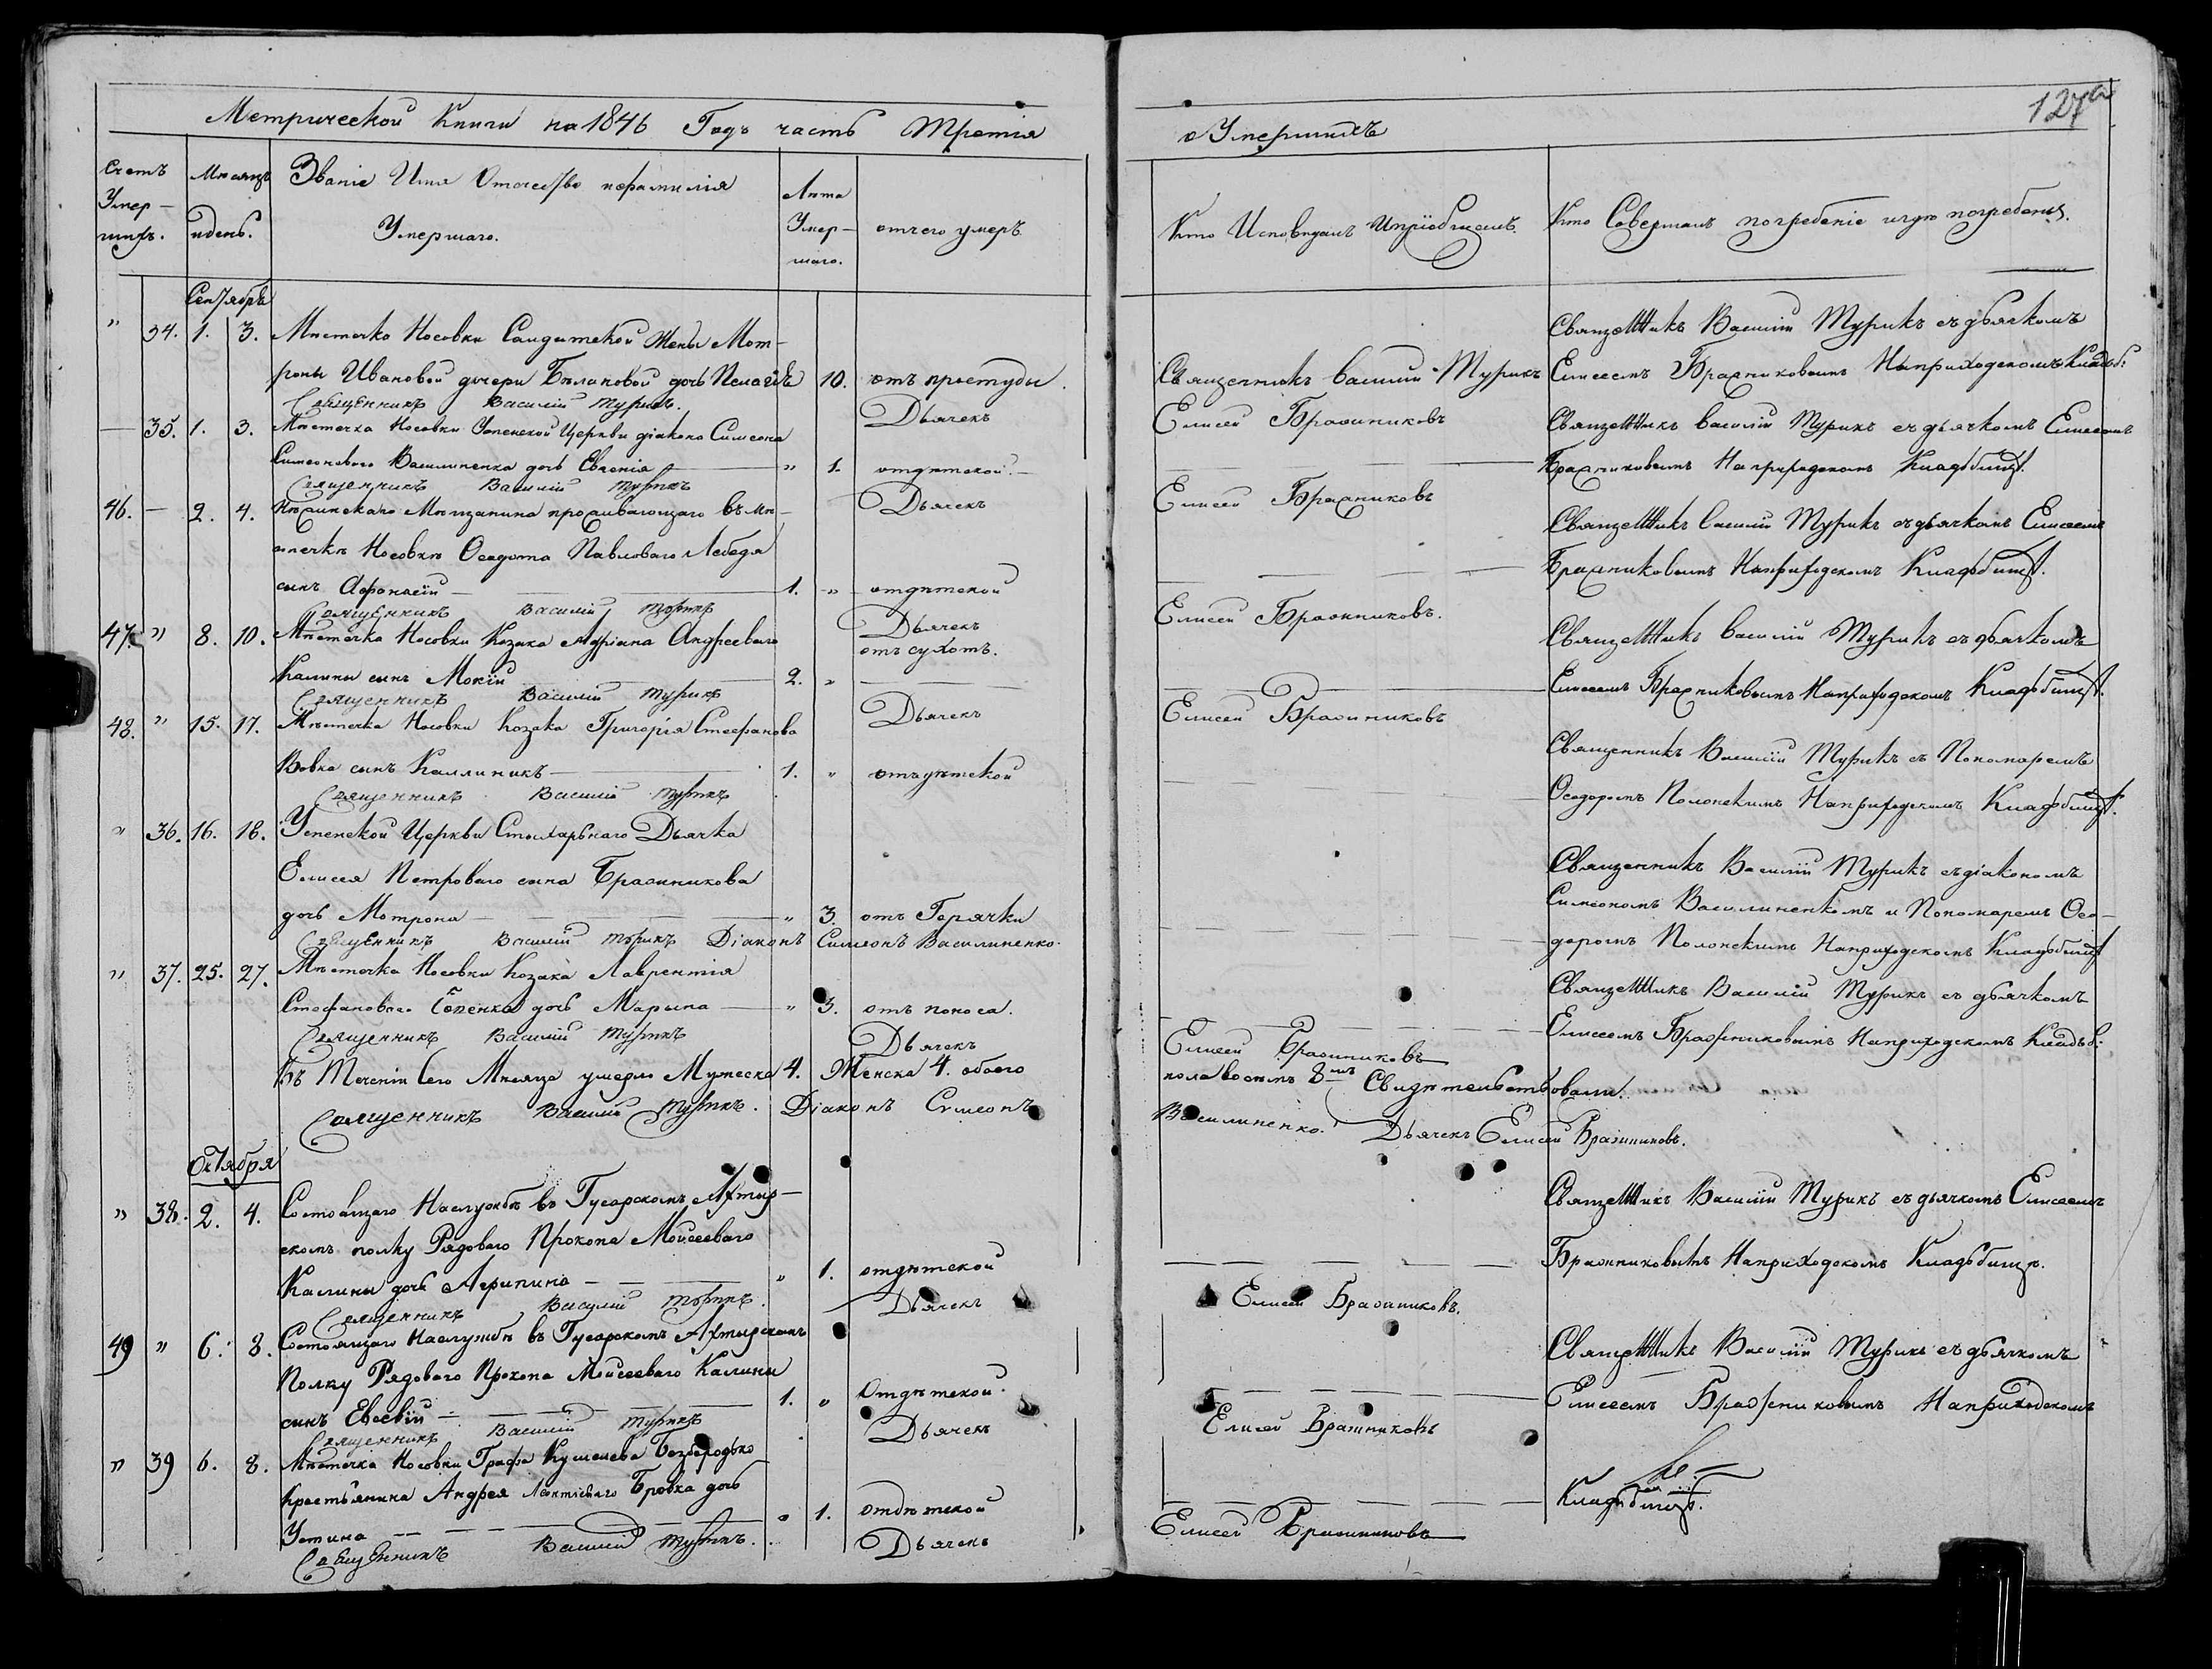 Метрической Книги на 1846 Годъ часть Третія
Счетъ Умер-шихъ.
Мѣсяцъ и день.
Званіе Имя Отчество и фамилія
Умершаго.
Лѣта Умер-шаго.
отчего умеръ.
Сентябрь
" 34. 1. 3. Мѣстечка Носовки Солдатской Жены Мот-
роны Ивановой дочери Бѣлановой дочь Пелагія 10. отъ простуды.
Священникъ Василій Турикъ. Дьячекъ
— 35. 1. 3. Мѣстечка Носовки Успенской Церкви діакона Симеона
Симеонового Василиненка дочь Евгенія " 1. отдѣтской.
Священникъ Василій Турикъ Дьячекъ
46. — 2. 4. Нѣжинскаго Мѣщанина проживающаго въ мѣ-
стечкѣ Носовкѣ Федота Павлового Лебедя
сынъ Афанасій 1. " отдѣтской
Священникъ Василій Турикъ Дьячекъ
47. " 8. 10. Мѣстечка Носовки Козака Андреевого отъ сухотъ.
Калины сынъ Мокій 2. "
Священникъ Василій Турикъ Дьячекъ
48. " 15. 17. Мѣстечка Носовки Козака Григорія Стефанова
Вовка сынъ Каллиникъ 1. " отъдѣтской
Священникъ Василій Турикъ
" 36. 16. 18. Успенской Церкви Стихарьнаго Дьячка
Елисея Петрового сына Бражникова
дочь Мотрона " 3. отъ Горячки
Священникъ Василій Турикъ Діаконъ Симеонъ Василиненко.
" 37. 25. 27. Мѣстечка Носовки Козака Лаврентія
Стефанового дочь Марына " 3. отъ поноса.
Священникъ Василій Турикъ Дьячекъ
Въ Теченіи Сего Мѣсяца умерло Мужеска 4. Женска 4. обоего
Священникъ Василій Турикъ. Діаконъ Симеонъ
Октября
" 38. 2. 4. Состоящаго Наслужбѣ въ Гусарскомъ Ахтыр-
скомъ полку Рядоваго Прокопа Мойсеевого
Калины дочь Агрипина " 1. отдѣтской
Священникъ Василій Турикъ. Дьячекъ
49 " 6. 8. Состоящаго Наслужбѣ въ Гусарскомъ Ахтырскомъ
Полку Рядового Прокопа Мойсеевого Калины
сынъ Евсевій 1. " Отдѣтской.
Священникъ Василій Турикъ Дьячекъ
" 39 6. 8. Мѣстечка Носовки Графа Кушелева Безбородько
крестьянина Андрея Бровка дочь
Устина " 1. отдѣтской
Священникъ Василій Турикъ. Дьячекъ
127а
о Умершихъ
Кто Исповѣдалъ Ипріобщалъ.
Кто Совершалъ погребеніе игдѣ погребены.
Священникъ Василій Турикъ съ дьячкомъ
Священникъ Василій Турикъ Елисеемъ Бражниковымъ Наприходскомъ Кладьб:
Елисей Бражниковъ
Священникъ Василій Турикъ съ дьячкомъ Елисеемъ
Бражниковымъ Наприходскомъ Кладьбищѣ.
Елисей Бражниковъ
Священникъ Василій Турикъ съ дьячкомъ Елисеемъ
Бражниковымъ Наприходскомъ Кладьбищѣ.
Елисей Бражниковъ.
Священникъ Василій Турикъ съ дьячкомъ
Елисеемъ Бражниковымъ Наприходскомъ Кладьбищѣ.
Елисей Бражниковъ
Священникъ Василій Турикъ съ Пономаремъ
Феодоромъ Полонскимъ Наприходскомъ Кладьбищѣ.
Священникъ Василій Турикъ съ діакономъ
Симеономъ Василиненкомъ и Пономаремъ Фео-
доромъ Полонскимъ Наприходскомъ Кладьбищѣ
Священникъ Василій Турикъ съ дьячкомъ
Елисеемъ Бражниковымъ Наприходскомъ Кладьб:
Елисей Бражниковъ
пола восемь 8мь Свидѣтельствовали:
Василиненко. Дьячекъ Елисей Бражниковъ.
Священникъ Василій Турикъ съ дьячкомъ Елисеемъ
Бражниковымъ Наприходскомъ Кладьбищѣ.
Елисей Бражниковъ.
Священникъ Василій Турикъ съ дьячкомъ
Елисеемъ Бражениковымъ Наприходскомъ
Елисей Бражниковъ
Кладьбищѣ.
Елисей Бражниковъ